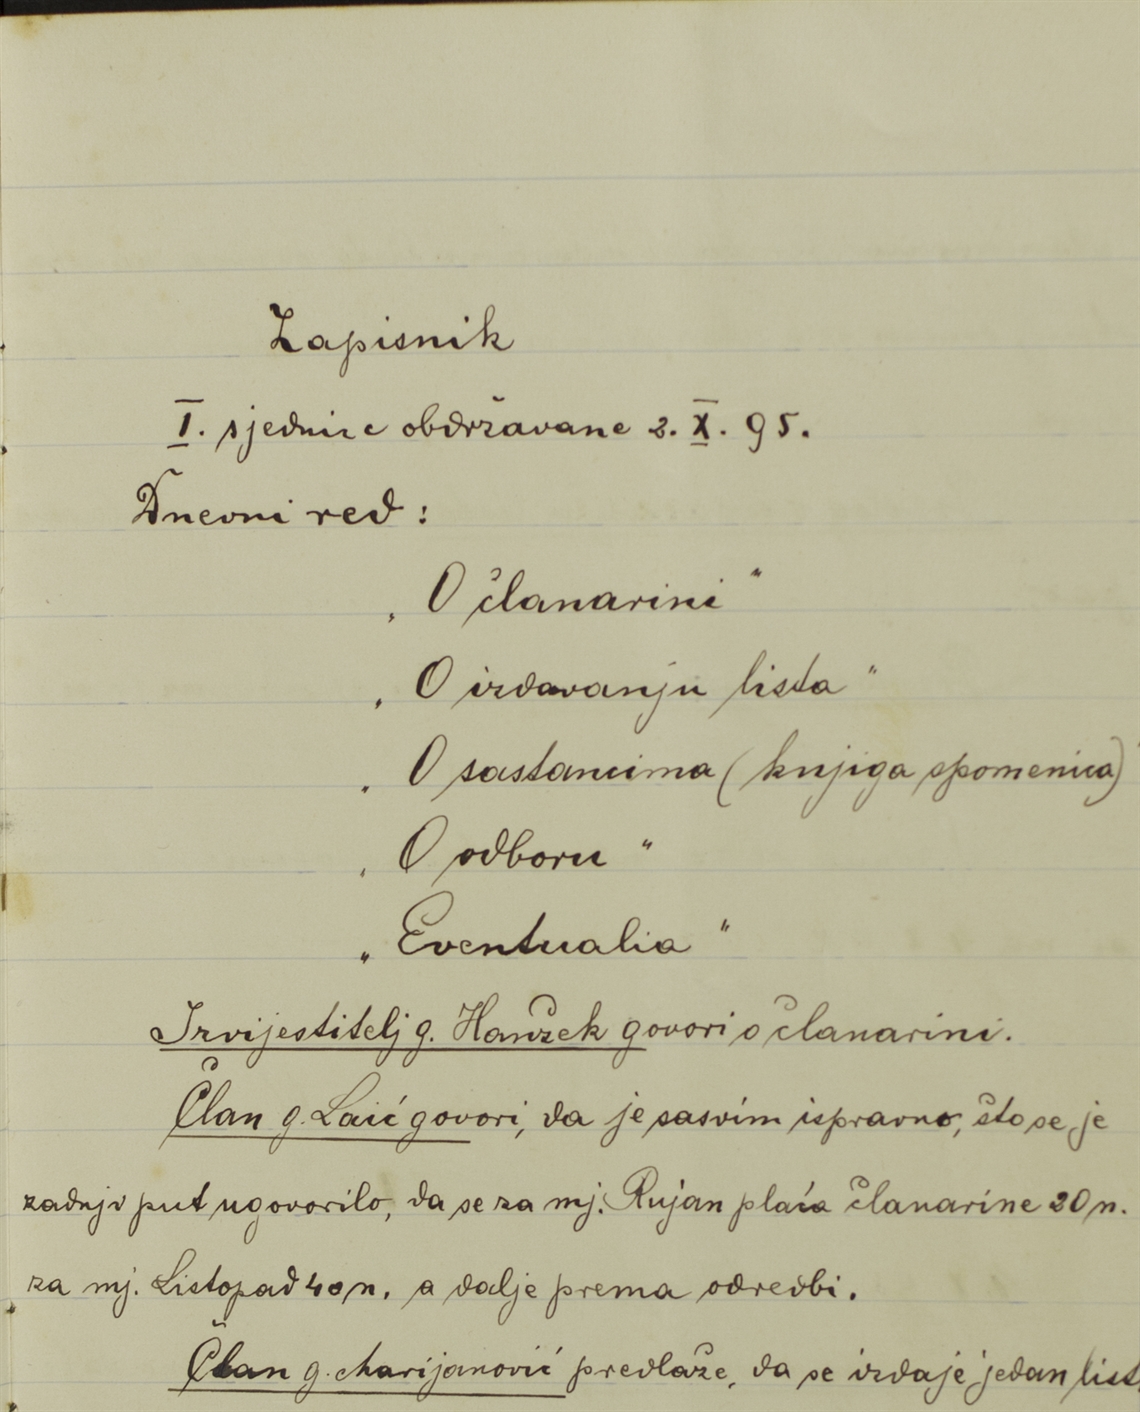 Zapisnik
I. sjednice obdržavane 2. X. 95.
Dnevni red:
„O članarini"
„O izdavanju lista"
„O sastancima (knjiga spomenica)"
„O odboru"
„Eventualia"
Izvijestitelj g. Hanžek govori o članarini.
Član g. Laić govori, da je sasvim ispravno, što se je
zadnji put ugovorilo, da se za mj. Rujan plaća članarine 20 n.
za mj. Listopad 40 n. a dalje prema odredbi.
Član g. Marijanović predlaže, da se izdaje jedan list,